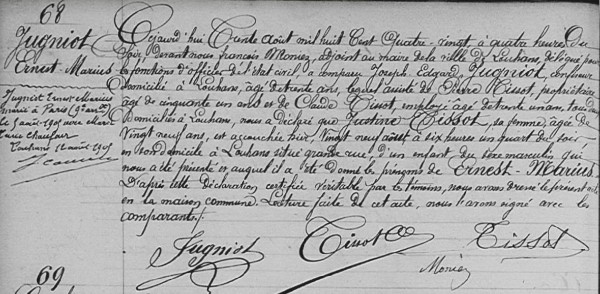 68
Jugniot
Ernest Marius
Jugniot Ernest Marius
marié à Paris
le août 1905 avec Marie
Louhans 12 août 1905
Cejourd'hui Trente Août mil huit Cent Quatre-vingt, à quatre heures Du
Soir, devant nous françois Moniez, adjoint au maire de la ville de Louhans, délégué pour
les fonctions d'officier de l'état civil, a comparu Joseph Edgard, Jugniot, confiseur
domicilié à Louhans, âgé de trente ans, lequel assisté de Pierre Tissot, propriétaire
âgé de cinquante un ans et de Claude Tissot, employé âgé de trente un ans, tous deux
domiciliés à Louhans, nous a déclaré que Justine Tissot, sa femme, âgée de
Vingt neuf ans, est accouchée hier, Vingt neuf août à six heures un quart du soir,
en son domicile à Louhans situé grande rue, d'un enfant du sexe masculin qui
nous a été présenté et auquel il a été donné les prénoms de Ernest-Marius.
D'après cette déclaration certifiée véritable par les témoins, nous avons dressé le présent acte
en la maison commune. Lecture faite de cet acte, nous l'avons signé avec les
comparants.
Jugniot Tissot Cde Tissot
Moniez
69